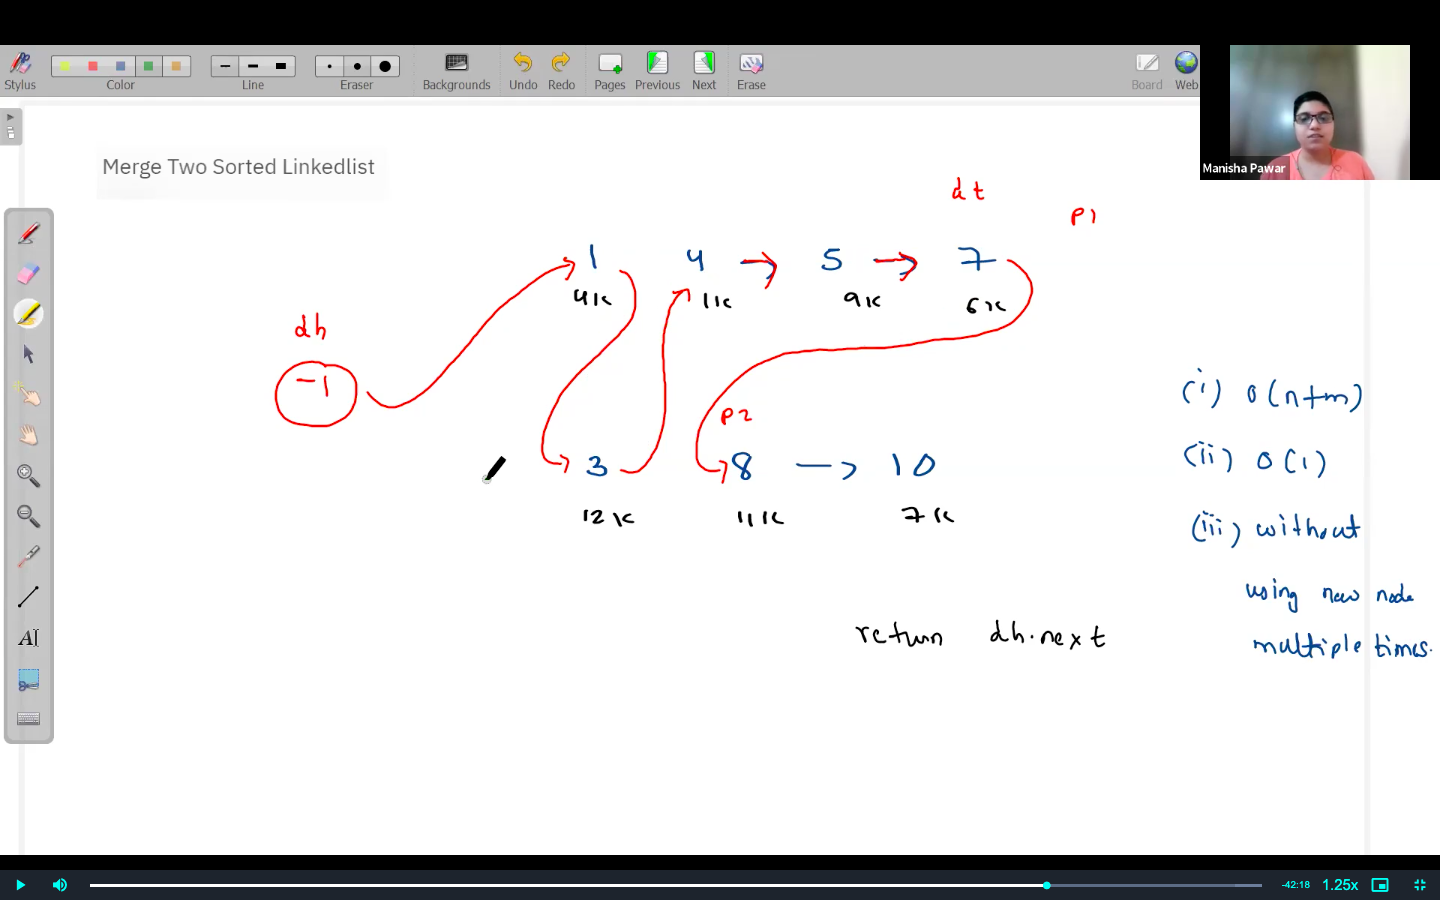 Stylus
Color
Line
Eraser
Backgrounds
Undo
Redo
Pages
Previous
Next
Erase
Board
Web
Manisha Pawar
Merge Two Sorted Linkedlist
dt
p1
1 4 5 7
4k 1k 9k 6k
dh
-1
p2
3 8 10
12k 11k 7k
(i) O(n+m)
(ii) O(1)
(iii) without
using new node
multiple times.
return dh.next
AI
-42:18
1.25x